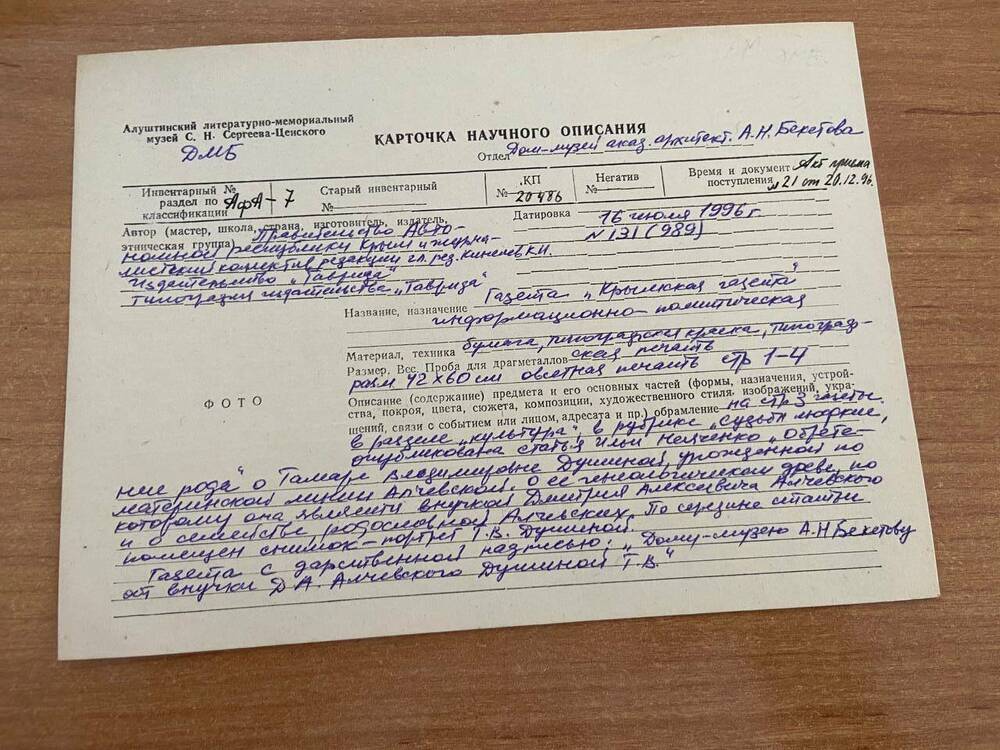 Алуштинский литературно-мемориальный
музей С. Н. Сергеева-Ценского
ДМБ
КАРТОЧКА НАУЧНОГО ОПИСАНИЯ
Отдел Дом-музей акад. архитект. А.Н. Бекетова
Инвентарный №
раздел по
классификации АфА-7
Старый инвентарный
№
КП
№ 20486
Негатив
№
Время и документ Акт приема
поступления №21 от 20.12.96.
Автор (мастер, школа, страна, изготовитель, издатель,
этническая группа) Правительство Авто-
номной республики Крым и журна-
листский коллектив редакции гл. ред. К.И.
издательство „Таврида"
типография издательства „Таврида"
Датировка 16 июля 1996 г
N 131 (989)
Название, назначение Газета „Крымская газета"
информационно-политическая
Материал, техника бумага, типографская краска, типограф-
Размер. Вес. Проба для драгметаллов ская печать
разм 42х60 см офсетная печать стр 1-4
ФОТО
Описание (содержание) предмета и его основных частей (формы, назначения, устрой-
ства, покроя, цвета, сюжета, композиции, художественного стиля, изображений, укра-
шений, связи с событием или лицом, адресата и пр.) обрамление на стр 3 газеты
в разделе „культура", в рубрике „судьбы людские",
опубликована статья Ильи „Обрете-
ние рода" о Тамаре Владимировне Душиной, урожденной по
материнской линии Алчевской. О ее генеалогическом древе, по
которому она является внучкой Дмитрия Алексеевича Алчевского
и о семействе, родословной Алчевских. По середине статьи
помещен снимок-портрет Т.В. Душиной.
Газета с дарственной надписью: „Дому-музею А.Н Бекетову
от внучки Д.А. Алчевского Душиной Т.В."